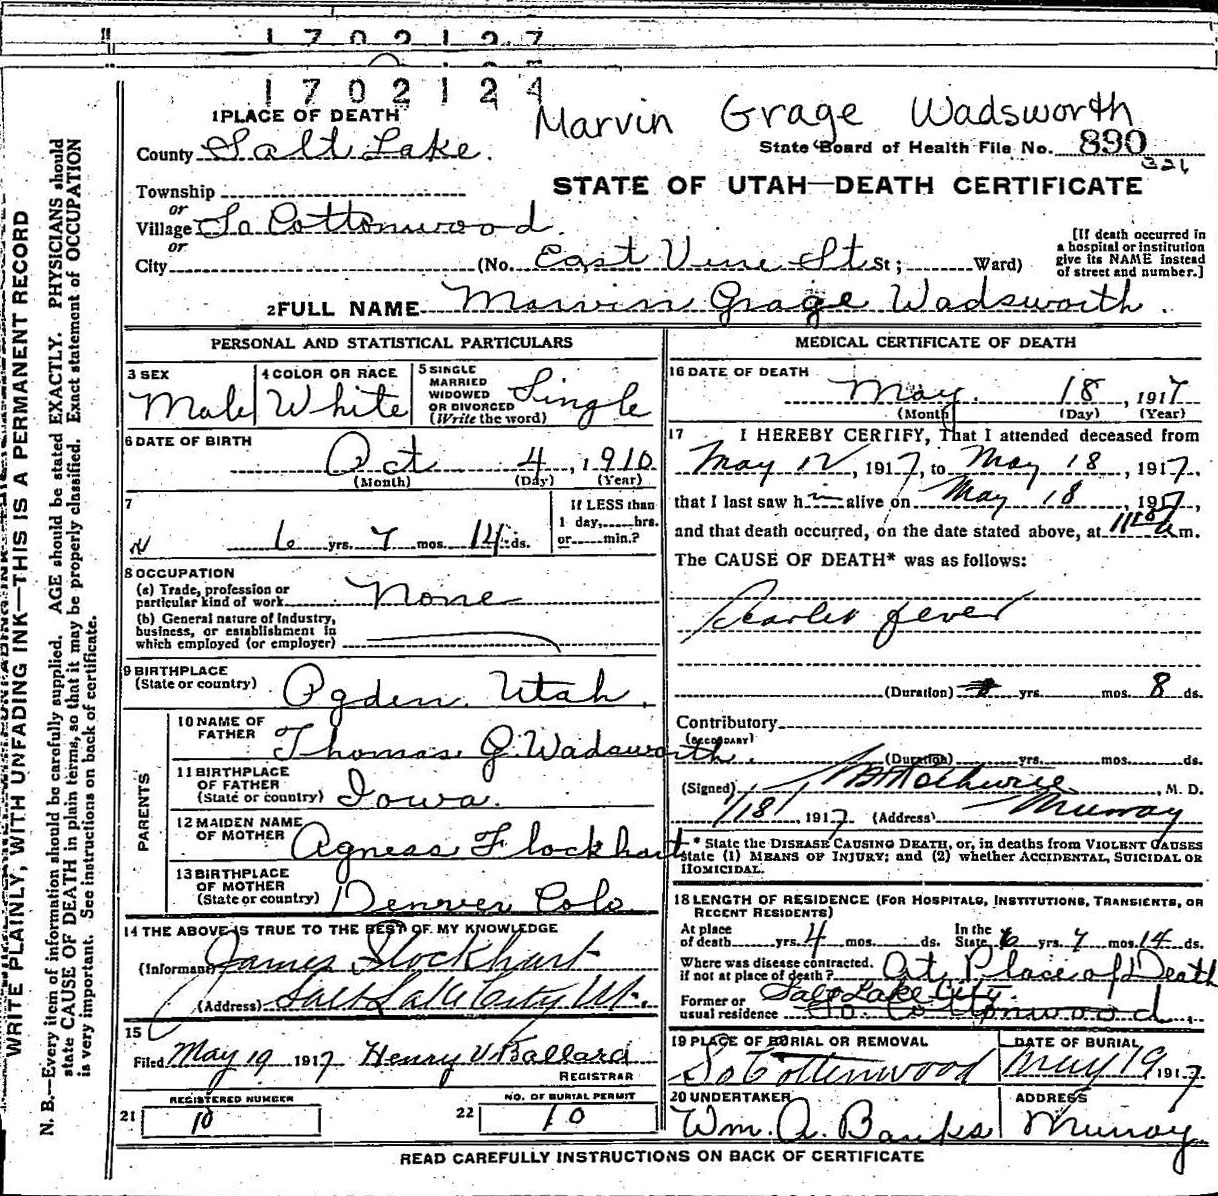 1702127
1702124
Marvin Grage Wadsworth
1 PLACE OF DEATH
County Salt Lake.
State Board of Health File No. 890
321
STATE OF UTAH—DEATH CERTIFICATE
Township
or
Village So Cottonwood.
or
City (No. East Vine St St; Ward)
[If death occurred in
a hospital or institution
give its NAME instead
of street and number.]
2 FULL NAME Marvin Grage Wadsworth.
PERSONAL AND STATISTICAL PARTICULARS
3 SEX Male
4 COLOR OR RACE White
5 SINGLE
MARRIED
WIDOWED
OR DIVORCED
(Write the word) Single
6 DATE OF BIRTH
Oct 4, 1910
(Month) (Day) (Year)
7
6 yrs. 7 mos. 14 ds.
If LESS than
1 day, hrs.
or min.?
8 OCCUPATION
(a) Trade, profession or
particular kind of work None
(b) General nature of Industry,
business, or establishment in
which employed (or employer)
9 BIRTHPLACE
(State or country) Ogden Utah.
PARENTS
10 NAME OF
FATHER Thomas G. Wadsworth.
11 BIRTHPLACE
OF FATHER
(State or country) Iowa.
12 MAIDEN NAME
OF MOTHER Agness Flockhart
13 BIRTHPLACE
OF MOTHER
(State or country) Denver Colo
14 THE ABOVE IS TRUE TO THE BEST OF MY KNOWLEDGE
(Informant) James Flockhart
(Address) Salt Lake City Ut.
15
Filed May 19 1917 Henry V Ballard
REGISTRAR
21 REGISTERED NUMBER
10
22 NO. OF BURIAL PERMIT
10
MEDICAL CERTIFICATE OF DEATH
16 DATE OF DEATH
May 18, 1917
(Month) (Day) (Year)
17 I HEREBY CERTIFY, That I attended deceased from
May 12, 1917, to May 18, 1917.
that I last saw him alive on May 18, 1917,
and that death occurred, on the date stated above, at a m.
The CAUSE OF DEATH* was as follows:
Scarlet fever
(Duration) yrs. mos. 8 ds.
Contributory
(SECONDARY)
(Duration) yrs. mos. ds.
(Signed) , M. D.
1/18/, 1917 (Address) Murray
* State the DISEASE CAUSING DEATH, or, in deaths from VIOLENT CAUSES
state (1) MEANS OF INJURY; and (2) whether ACCIDENTAL, SUICIDAL OR
HOMICIDAL.
18 LENGTH OF RESIDENCE (FOR HOSPITALS, INSTITUTIONS, TRANSIENTS, OR
RECENT RESIDENTS)
At place
of death yrs. 4 mos. ds. In the
State 6 yrs. 7 mos. 14 ds.
Where was disease contracted,
if not at place of death? At Place of Death
Former or
usual residence Salt Lake City.
So. Cottonwood.
19 PLACE OF BURIAL OR REMOVAL
So Cottonwood
DATE OF BURIAL
May 19 1917
20 UNDERTAKER
Wm. A. Banks
ADDRESS
Murray
READ CAREFULLY INSTRUCTIONS ON BACK OF CERTIFICATE
WRITE PLAINLY, WITH UNFADING INK—THIS IS A PERMANENT RECORD
N. B.—Every item of information should be carefully supplied. AGE should be stated EXACTLY. PHYSICIANS should
state CAUSE OF DEATH in plain terms, so that it may be properly classified. Exact statement of OCCUPATION
is very important. See instructions on back of certificate.